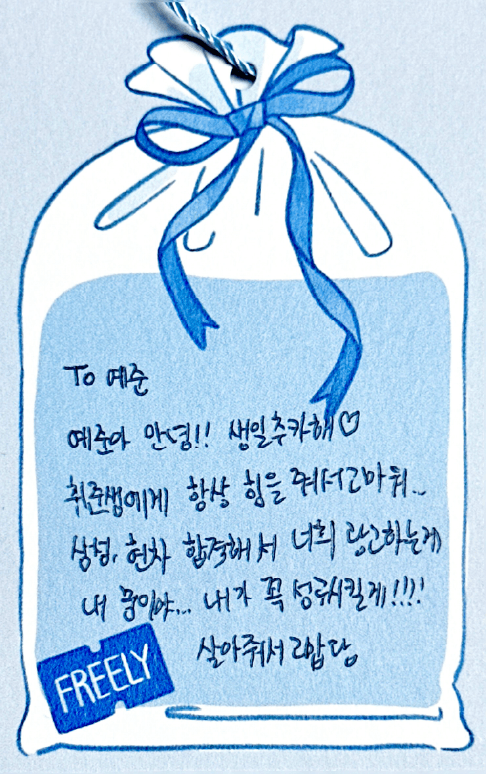 To 예준
예준아 안녕!! 생일추카해♡
취준생에게 항상 힘을 줘서고마워..
삼성, 현차 합격해서 너희 광고하는게
내 꿈이야... 내가 꼭 성류시킬게!!!!
살아줘서 고맙당
FREELY